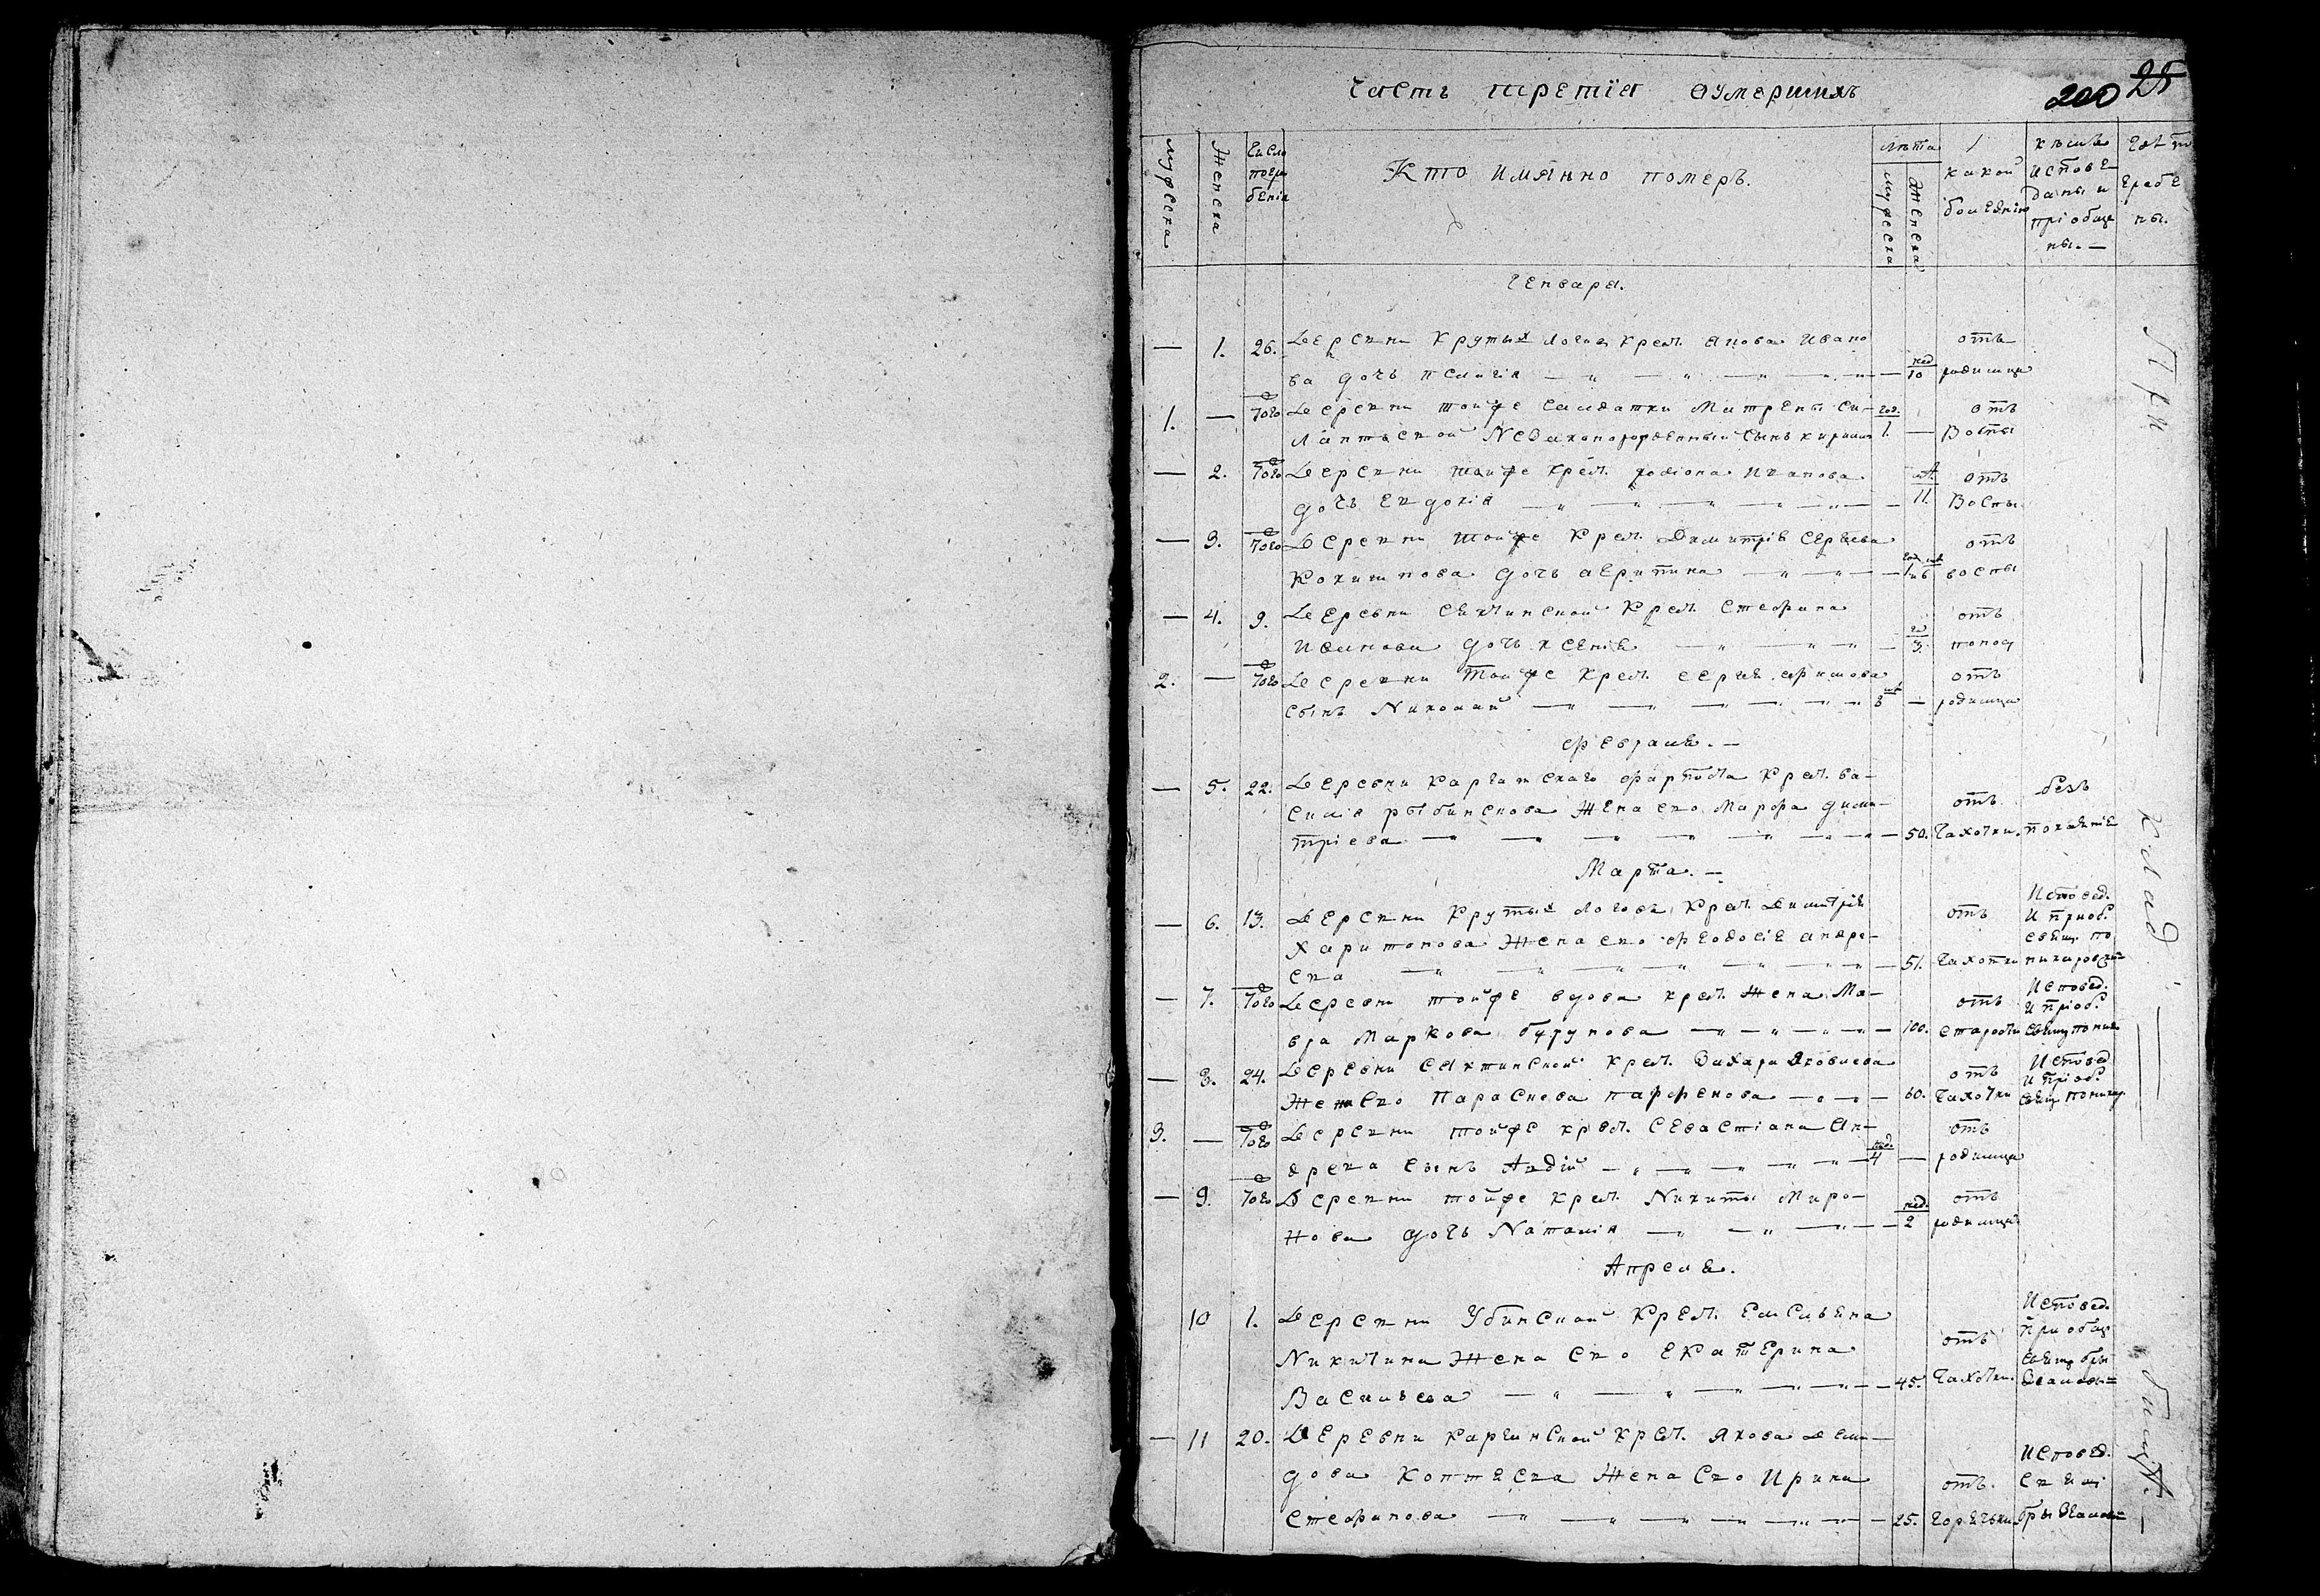 Часть третїя о умершихъ
200 25
Мужеска
Женска
Число погребенія
Кто имянно померъ.
Лѣта
Мужеска
Женска
какой болезнію
кѣмъ исповеданы и пріобщены. —
где погребены.
Генваря.
— 1. 26. Деревни Крутыхъ Логовъ крест. Якова Ивано
ва дочь Пелагія — нед. 10 отъ родимца
1. — Того Деревни тойже салдатки Матрены Си-
незаконорожденный сынъ год. 1. — отъ Воспы
— 2. Того Деревни тойже крест. Родіона Иванова
дочь Евдокія — лѣт. 11. отъ Воспы
— 3. Того Деревни тойже крест. Димитрія Сергѣева
дочь — год. 1 и 6 отъ воспы
— 4. 9. Деревни Сектинской крест. Стефана
Иванова дочь Ксенія — 3. отъ
2. — Того Деревни тойже крест. Сергія
сынъ Николай — 8 — отъ родимца
Февраля. —
— 5. 22. Деревни Каргатскаго Фарпоста крест. Ва-
силія Рыбинскова жена ево Марфа Дими-
тріева — 50. отъ Чахотки. безъ покаянія
Марта. —
— 6. 13. Деревни Крутыхъ Логовъ крест. Димитрія
Харитонова жена ево Феодосія Андре-
ева — 51. отъ Чахотки Исповед. и приоб. свящ. по
— 7. Того Деревни тойже вдова крест. жена Ма-
вра Маркова — 100. отъ старости Исповед. и пріоб. свящ.
— 8. 24. Деревни Сектинской крест. Захара Яковлева
жена ево Параскева Парфенова — 60. отъ Чахотки Исповед. и пріоб. свящ.
3. — Того Деревни тойже крест. Севастіана Ан-
дреева сынъ Авдій — нед. 4 — отъ родимца
— 9. Того Деревни тойже крест. Никиты Миро-
нова дочь Наталія — нед. 2 отъ родимца
Апреля.
10 1. Деревни Убинской крест. Емельяна
Никитина жена ево Екатерина
Васильева — 45. отъ Чахотки. Исповед. приобщ. свящ.
— 11 20. Деревни Каргинской крест. Якова Деми-
дова жена ево Ирина
Стефанова — 25. отъ горячьки. Исповед. свящ.
При — клад — бищѣ. —